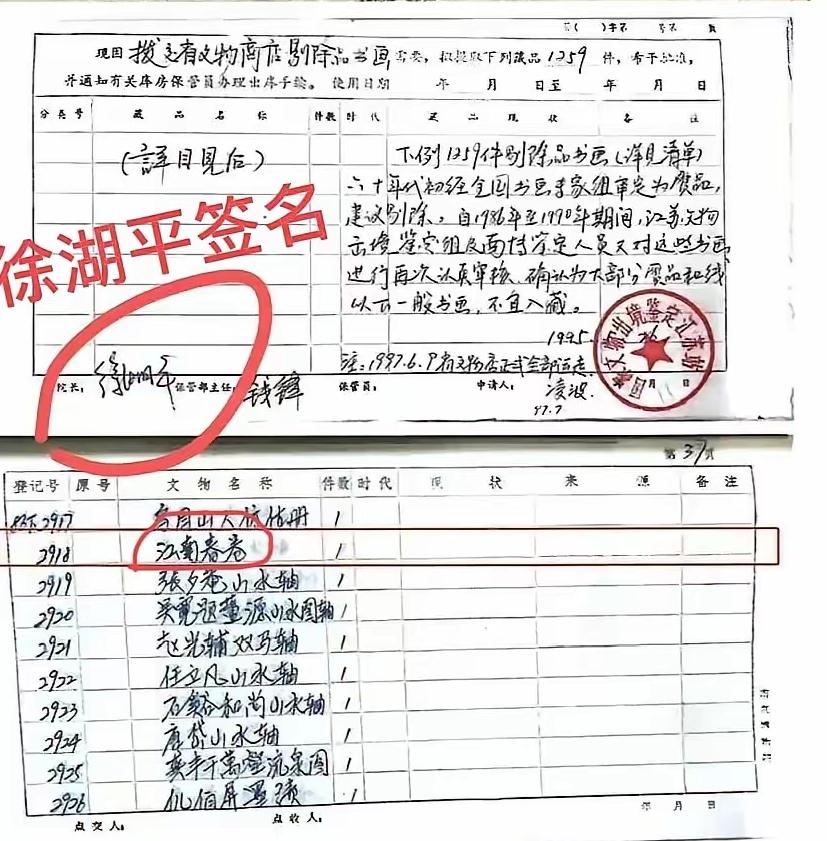 第( )字第 号第 页
现因 拨交省文物商店剔除品书画 需要，拟提取下列藏品 1259 件，希予批准，
并通知有关库房保管员办理出库手续。使用日期 年 月 日至 年 月 日
分类号 藏品名称 件数 时代 藏品现状 备注
(詳目見后)
下例1259件剔除品书画(详见清单)
六十年代初经全国书画专家组审定为赝品,
建议剔除。自1986年至1990年期间,江苏文物
出境鉴定组及南博鉴定人员又对这些书画
进行再次认真审核、确认为大部分赝品和线
以下一般书画,不宜入藏。
1995.
注:1997.6.9
徐湖平签名
国家文物出境鉴定江苏站
院长: 徐湖平 保管部主任: 钱锋 保管员: 申请人: 凌波. 月 日
97.7
第37页
登记号 原号 文物名称 件数 时代 现状 来源 备注
2917 1
2918 江南春卷 1
2919 張夕庵山水轴 1
2920 吴寬题董源山水图轴 1
2921 赵光辅双马轴 1
2922 任立凡山水轴 1
2923 石谿和尚山水轴 1
2924 唐岱山水轴 1
2925 龚半千萬壑流泉图 1
2926 1
年 月 日
点交人: 点收人: